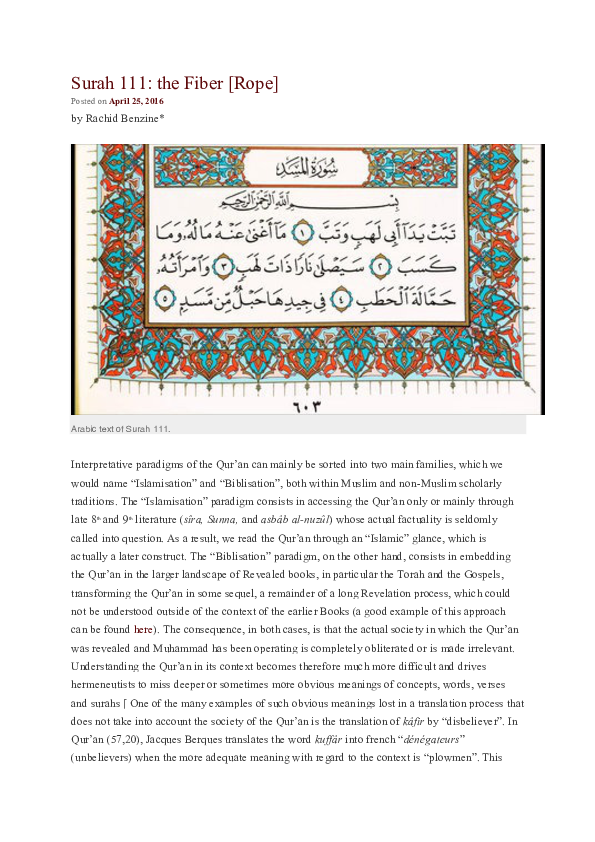 Surah 111: the Fiber [Rope]
Posted on April 25, 2016
by Rachid Benzine*
سُورَةُ المَسَدِ
بِسْمِ اللَّهِ الرَّحْمَٰنِ الرَّحِيمِ
تَبَّتْ يَدَآ أَبِى لَهَبٍ وَتَبَّ ١ مَآ أَغْنَىٰ عَنْهُ مَالُهُۥ وَمَا
كَسَبَ ٢ سَيَصْلَىٰ نَارًا ذَاتَ لَهَبٍ ٣ وَٱمْرَأَتُهُۥ
حَمَّالَةَ ٱلْحَطَبِ ٤ فِى جِيدِهَا حَبْلٌ مِّن مَّسَدٍۭ ٥
٦٠٣
Arabic text of Surah 111.
Interpretative paradigms of the Qur’an can mainly be sorted into two main families, which we
would name “Islamisation” and “Biblisation”, both within Muslim and non-Muslim scholarly
traditions. The “Islamisation” paradigm consists in accessing the Qur’an only or mainly through
late 8th and 9th literature (sîra, Sunna, and asbâb al-nuzûl) whose actual factuality is seldomly
called into question. As a result, we read the Qur’an through an “Islamic” glance, which is
actually a later construct. The “Biblisation” paradigm, on the other hand, consists in embedding
the Qur’an in the larger landscape of Revealed books, in particular the Torah and the Gospels,
transforming the Qur’an in some sequel, a remainder of a long Revelation process, which could
not be understood outside of the context of the earlier Books (a good example of this approach
can be found here). The consequence, in both cases, is that the actual society in which the Qur’an
was revealed and Muhammad has been operating is completely obliterated or is made irrelevant.
Understanding the Qur’an in its context becomes therefore much more difficult and drives
hermeneutists to miss deeper or sometimes more obvious meanings of concepts, words, verses
and surahs [ One of the many examples of such obvious meanings lost in a translation process that
does not take into account the society of the Qur’an is the translation of kâfir by “disbeliever”. In
Qur’an (57,20), Jacques Berques translates the word kuffâr into french “dénégateurs”
(unbelievers) when the more adequate meaning with regard to the context is “plowmen”. This